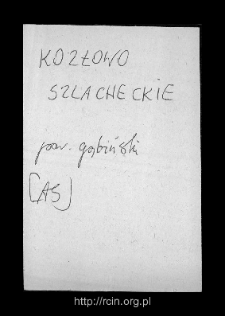 KOZŁOWO
SZLACHECKIE
pow. gąbiński
[AS]
http://rcin.org.pl